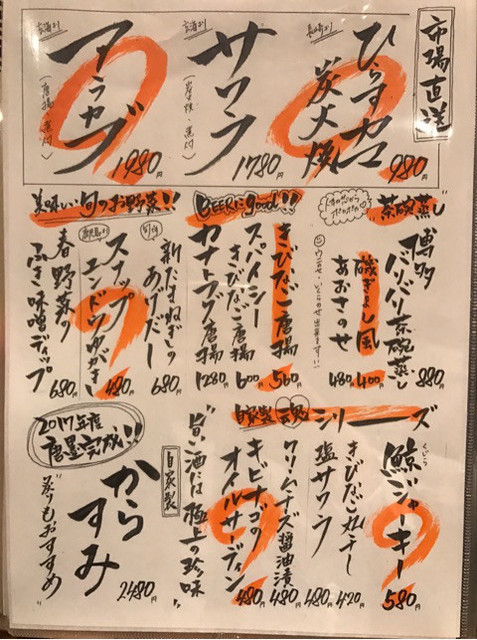 市場直送
長崎より
ひらすカマ
炭火焼
980円
玄海より
サワラ
(炭火焼・煮付)
1780円
玄海より
アラカブ
(唐揚・煮付)
1980円
茶碗蒸し
博多
バリバリ茶碗蒸し
880円
磯ぎよし風
400円
あおさのせ
480円
BEER is good!!
きびなご唐揚
560円
スパイシー
きびなご唐揚
600円
カナトフグ唐揚
1280円
美味しい旬のお野菜!!
新たまねぎの
あげだし
680円
スナップ
エンドウゆがき
480円
春野菜の
ふき味噌ディップ
680円
自家製魂シリーズ
鯨ジャーキー
くじら
580円
きびなご丸干し
420円
塩サワラ
480円
クリームチーズ醤油漬
480円
キビナゴの
オイルサーディン
480円
"旨い酒には極上の珍味"
自家製
2017年度
唐墨完成!!
からすみ
2480円
"炙りもおすすめ"